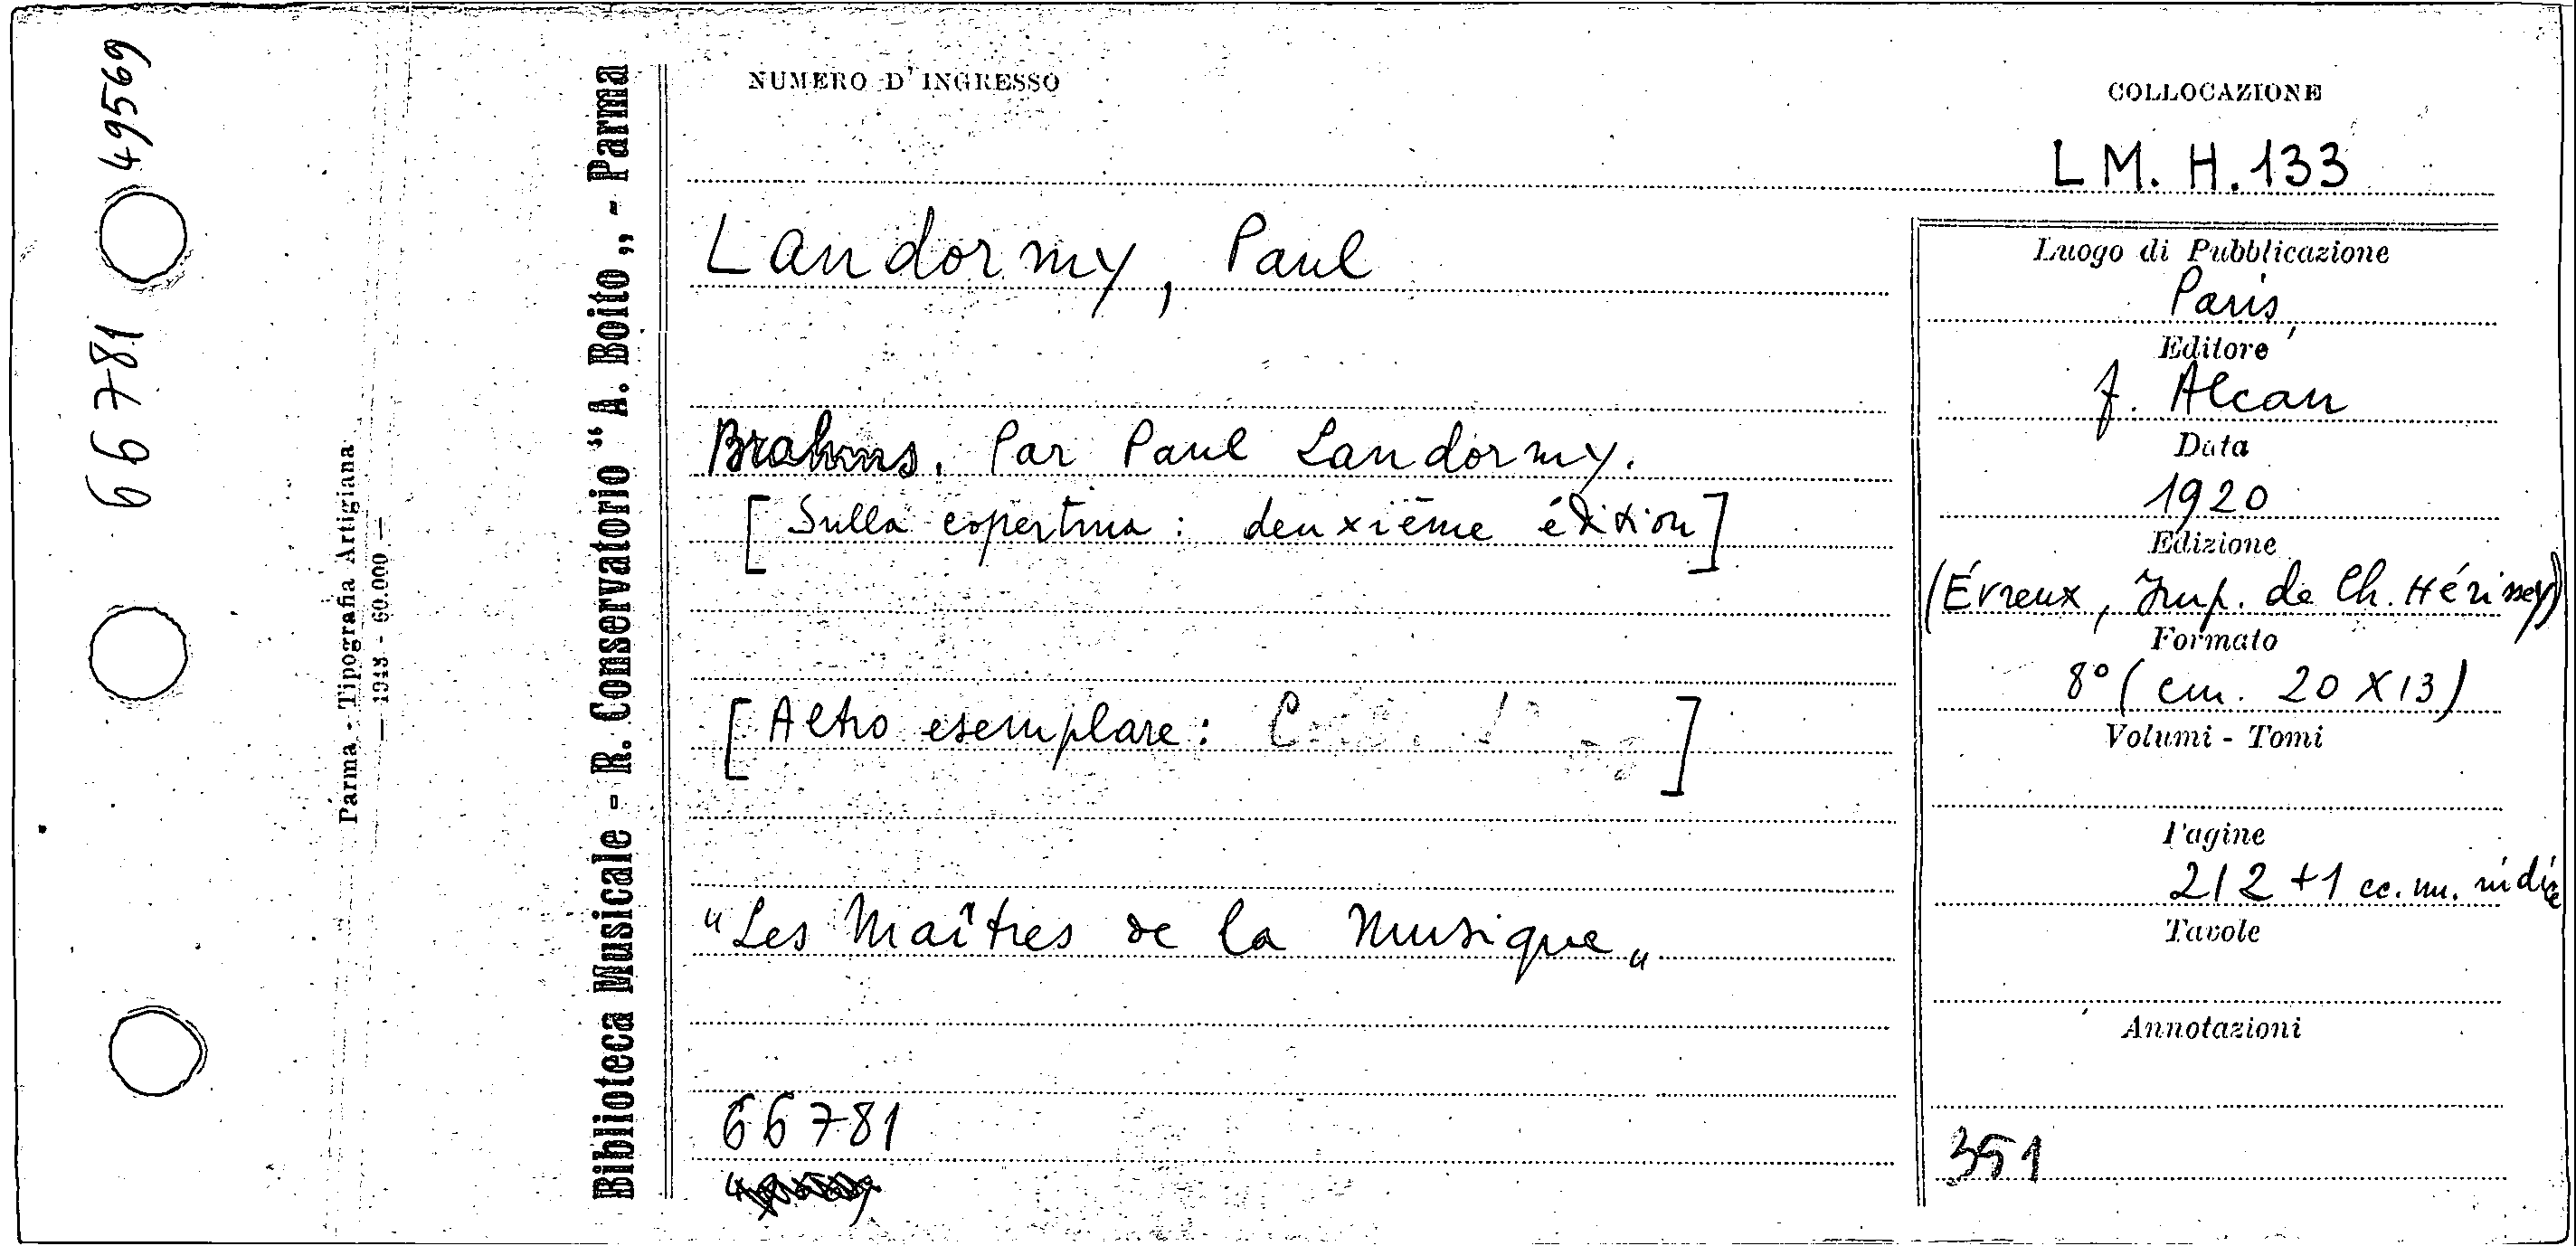 49569
66781
Parma - Tipografia Artigiana
— 1943 - 60.000 —
Biblioteca Musicale - R. Conservatorio “A. Boito„ - Parma
NUMERO D'INGRESSO
COLLOCAZIONE
LM. H. 133
Landormy, Paul
Brahms. Par Paul Landormy.
[Sulla copertina: deuxième édition]
[Altro esemplare: ]
"Les Maîtres de la Musique„
66781
Luogo di Pubblicazione
Paris,
Editore
F. Alcan
Data
1920
Edizione
(Évreux, Imp. de Ch. Hérissey)
Formato
8° (cm. 20 X 13)
Volumi - Tomi
Pagine
212 + 1 cc. nn.
Tavole
Annotazioni
351